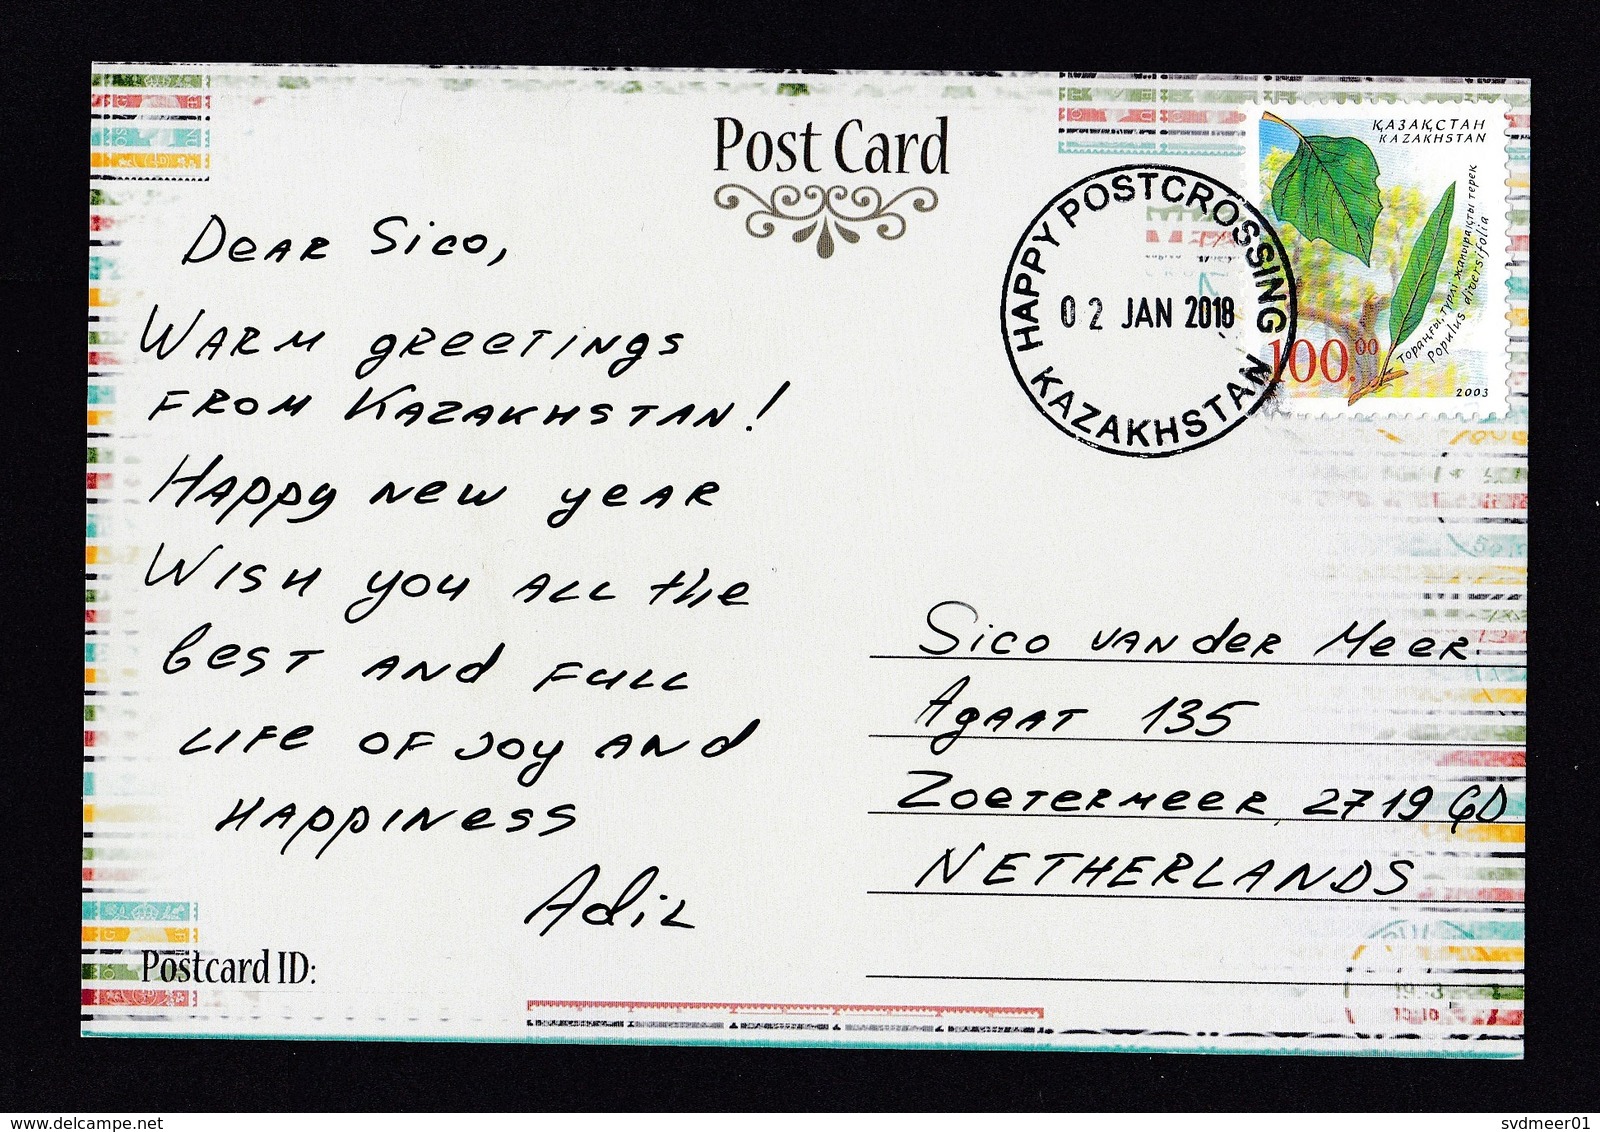 Post Card
ҚАЗАҚСТАН
KAZAKHSTAN
Тораңғы, түрлі жапырақты терек
Populus diversifolia
100.00
2003
HAPPY POSTCROSSING
02 JAN 2018
KAZAKHSTAN
Dear Sico,
Warm greetings
from Kazakhstan!
Happy new year
Wish you all the
best and full
life of joy and
happiness
Adil
Postcard ID:
Sico van der Meer
Agaat 135
Zoetermeer, 2719 GD
NETHERLANDS
delcampe.net
svdmeer01